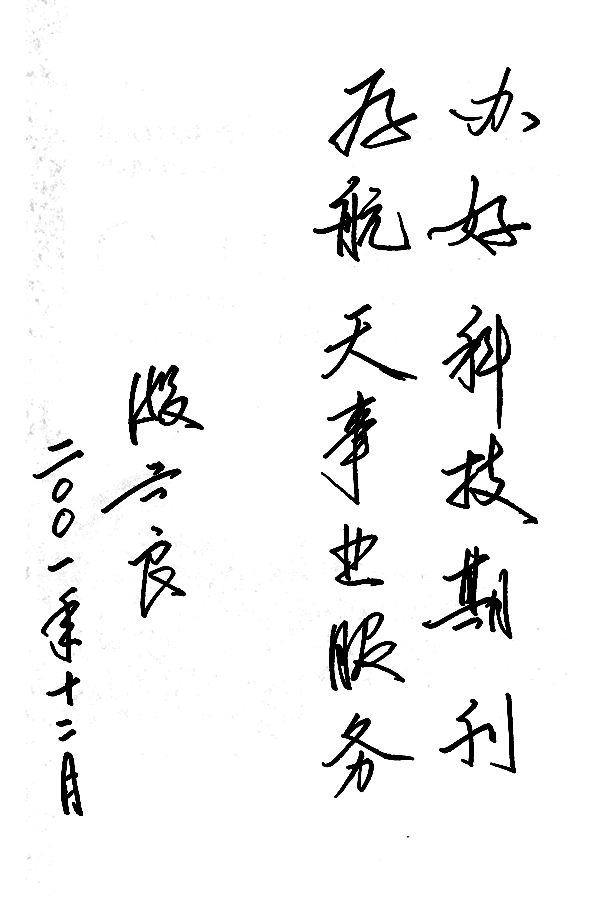 办好科技期刊
为航天事业服务
殷兴良
二〇〇一年十二月